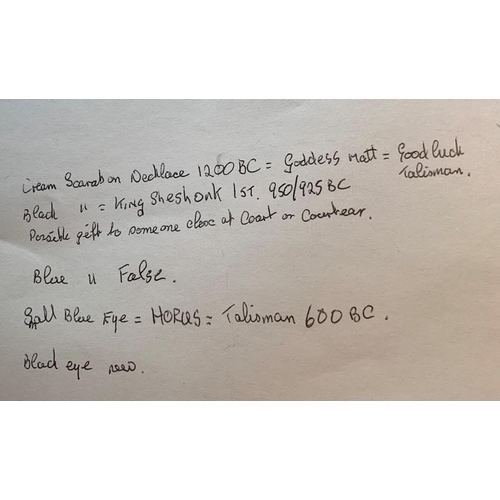 Cream Scarab on Necklace 1200 BC = Goddess Matt = Good luck
Talisman.
Black " = King Sheshonk 1st. 950/925 BC
Possible gift to someone close at Court or Courtear.
Blue " False.
Small Blue Eye = HORUS = Talisman 600 BC.
Black eye new.